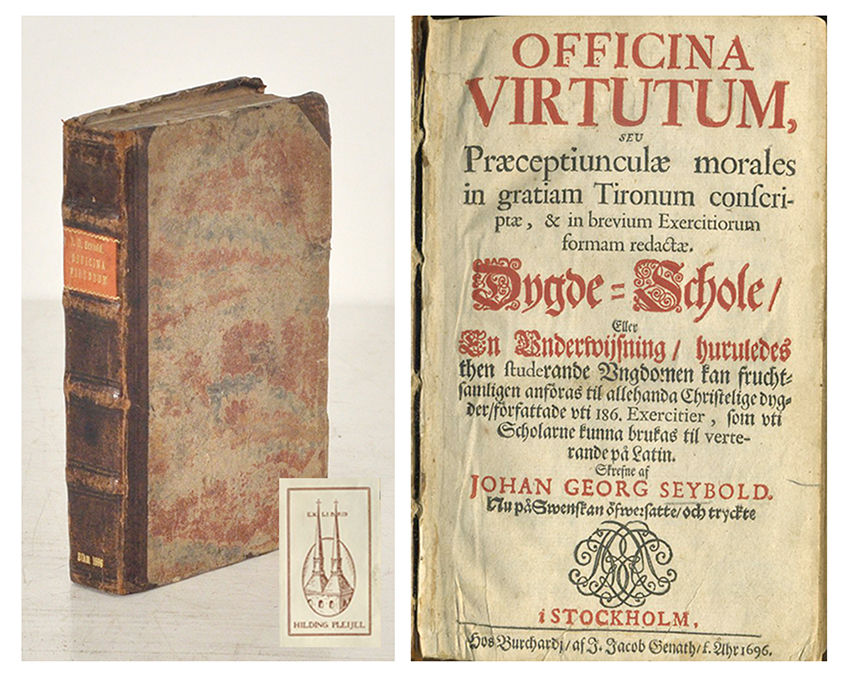 OFFICINA
VIRTUTUM
Sthlm 1696
EX LIBRIS
HILDING PLEIJEL
OFFICINA
VIRTUTUM,
SEU
Præceptiunculæ morales
in gratiam Tironum conſcri-
ptæ, & in brevium Exercitiorum
formam redactæ.
Dygde=Schole/
Eller
En Vnderwijſning/ huruledes
then ſtuderande Vngdomen kan frucht-
ſamligen anföras til allehanda Chriſtelige dyg-
der/författade vti 186. Exercitier, ſom vti
Scholarne kunna brukas til verte-
rande på Latin.
Skrefne af
JOHAN GEORG SEYBOLD.
Nu på Swenſkan öfwerſatte/och tryckte
i STOCKHOLM,
Hos Burchardj/af J. Jacob Genath/f. Åhr 1696.